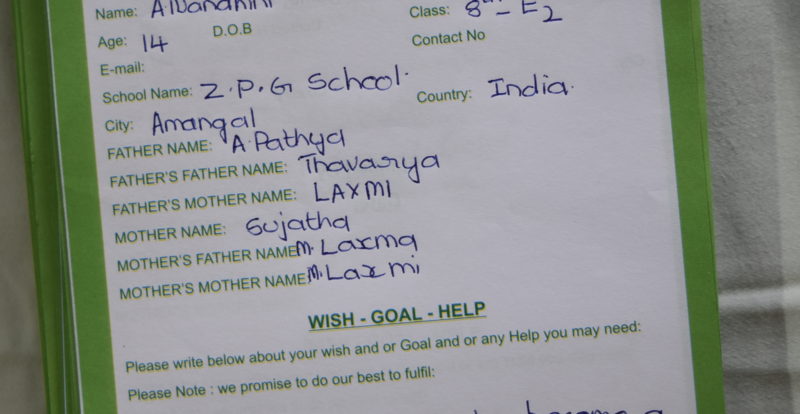 Name: A.Nandhini Class: 8th - E2
Age: 14 D.O.B Contact No
E-mail:
School Name: Z.P.G School. Country: India.
City: Amangal
FATHER NAME: A.Pathya
FATHER'S FATHER NAME: Thavarya
FATHER'S MOTHER NAME: LAXMI
MOTHER NAME: Sujatha
MOTHER'S FATHER NAME M. Laxma
MOTHER'S MOTHER NAME M. Laxmi
WISH - GOAL - HELP
Please write below about your wish and or Goal and or any Help you may need:
Please Note : we promise to do our best to fulfil: